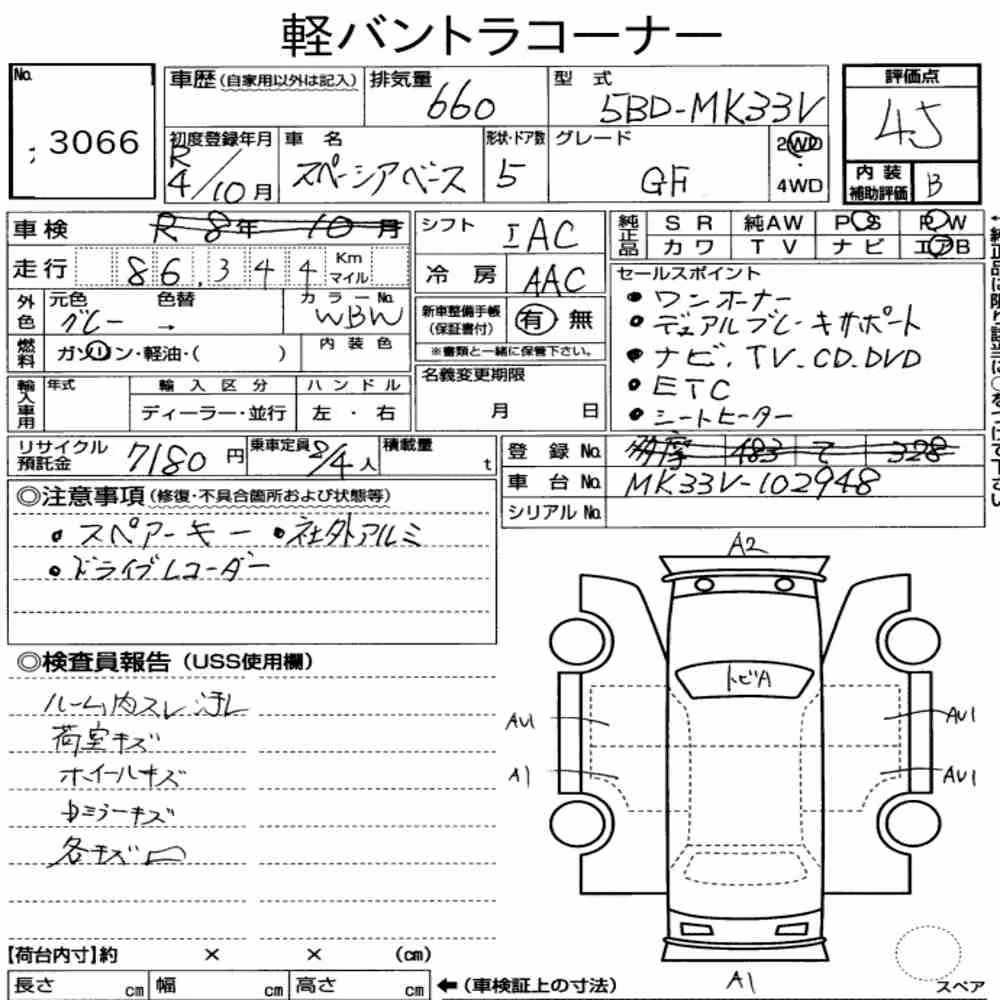 軽バントラコーナー
No.
3066
車歴 (自家用以外は記入)
排気量 660
型式 5BD-MK33V
評価点 4.5
初度登録年月 R 4/10月
車名 スペーシアベース
形状・ドア数 5
グレード GF
2WD・4WD
内装補助評価 B
車検 R 8年 10月
シフト IAC
純正品 SR 純AW PS PW
カワ TV ナビ エアB
走行 86,344 Km マイル
冷房 AAC
セールスポイント
・ワンオーナー
・デュアルブレーキサポート
・ナビ.TV.CD.DVD
・ETC
・シートヒーター
外色 元色 グレー → 色替
カラーNo. WBW
新車整備手帳(保証書付) 有 無
※書類と一緒に保管下さい。
燃料 ガソリン・軽油・( )
内装色
名義変更期限
月 日
輸入車用 年式 輸入区分 ハンドル
ディーラー・並行 左・右
リサイクル預託金 7180円
乗車定員 2/4人
積載量 t
登録No. 多摩 483 て 328
車台No. MK33V-102948
シリアルNo.
←純正品に限り該当に○をつけて下さい
◎注意事項(修復・不具合箇所および状態等)
・スペアーキー ・社外アルミ
・ドライブレコーダー
◎検査員報告(USS使用欄)
ルーム内スレ汚レ
荷室キズ
ホイールキズ
ミラーキズ
各キズ凹
A2
トビA
AU1
AU1
A1
AU1
A1
【荷台内寸】約 × × (cm)
長さ cm 幅 cm 高さ cm
←(車検証上の寸法)
スペア